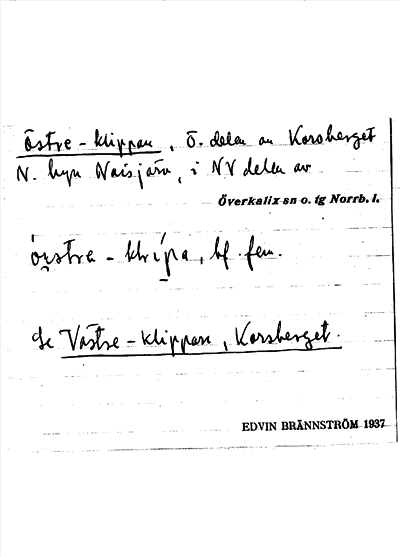 Östre-klippan, Ö. delen av Korsberget
N. byn Naisjärv, i NV delen av
Överkalix sn o. tg Norrb. l.
bf. fem.
Se Västre-klippan, Korsberget.
EDVIN BRÄNNSTRÖM 1937